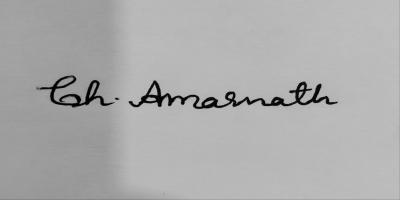 Ch. Amarnath